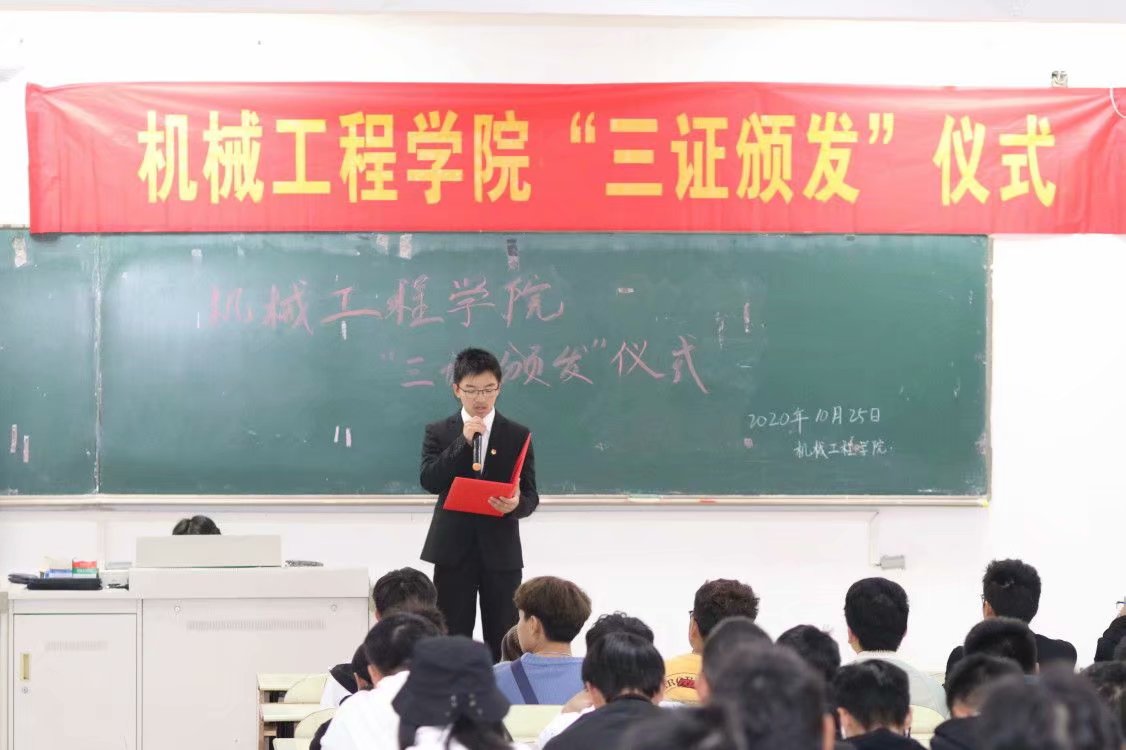 机械工程学院“三证颁发”仪式
机械工程学院
“三 颁发”仪式
2020年10月25日
机械工程学院